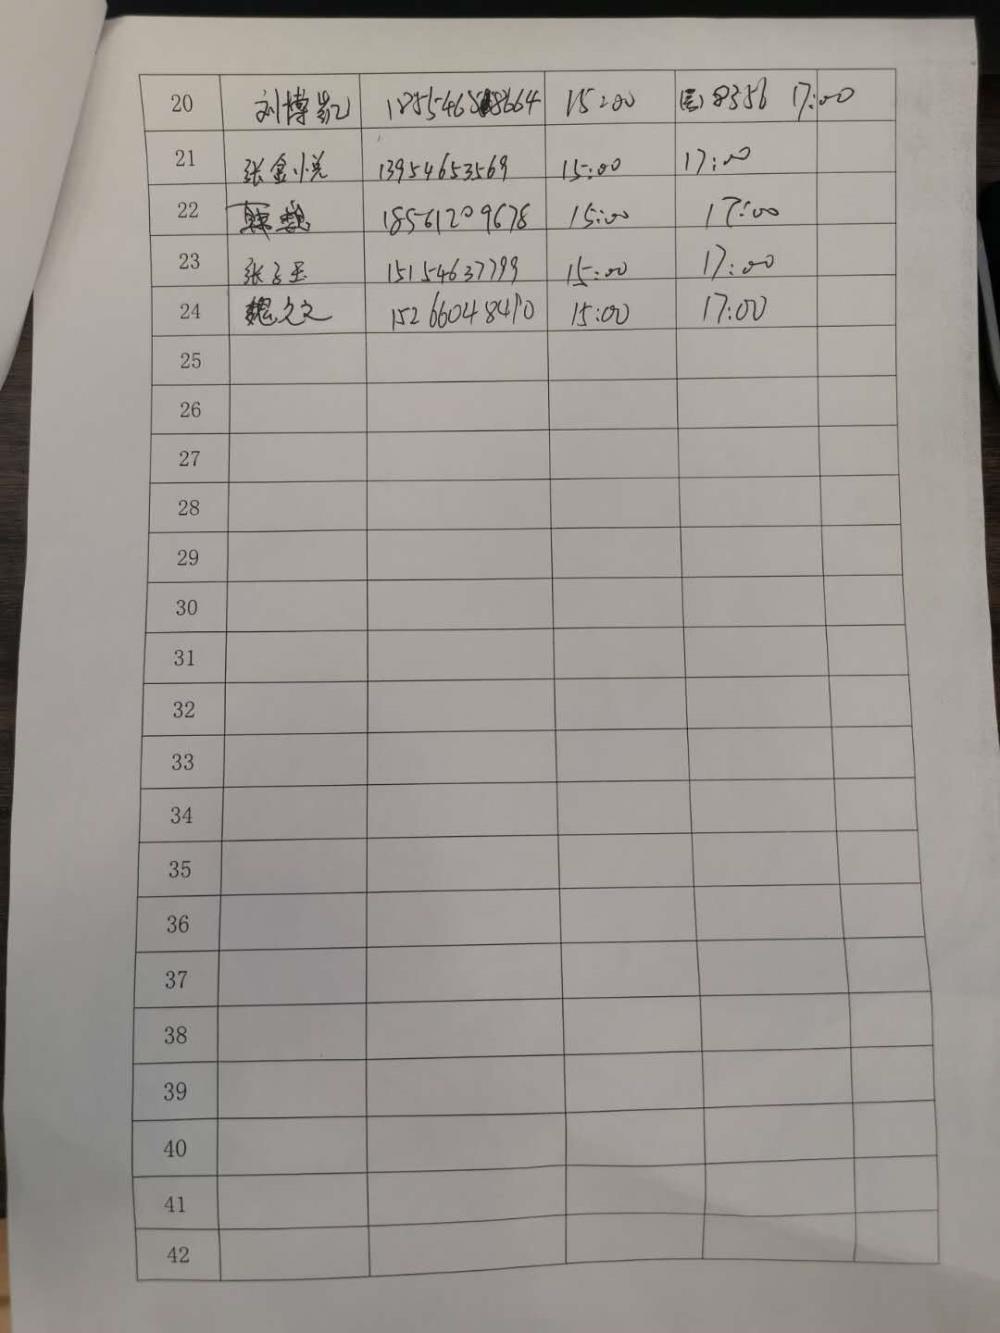 20 刘博凯 15:00 8356 17:00
21 张金悦 13954653569 15:00 17:00
22 18561209678 15:00 17:00
23 张子玉 15154637799 15:00 17:00
24 魏允文 15266048410 15:00 17:00
25
26
27
28
29
30
31
32
33
34
35
36
37
38
39
40
41
42